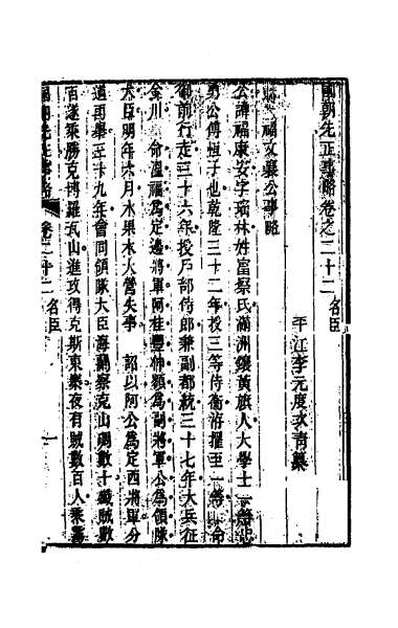 國朝先正事略卷之二十二　名臣
平江李元度次青纂
福文襄公事略
公諱福康安字瑤林姓富察氏滿洲鑲黃旗人大學士一等忠
勇公傅恆子也乾隆三十二年授三等侍衛洊擢至一等命
御前行走三十六年授戶部侍郎兼副都統三十七年大兵征
金川命溫福為定邊將軍阿桂豐伸額為副將軍公為領隊
大臣明年六月木果木大營失事　詔以阿公為定西將軍分
道再舉三十九年會同領隊大臣海蘭察克山碉數十殲賊數
百遂乘勝克博羅瓦山進攻得克斯東寨夜有賊數百人乘
國朝先正事略　卷二十二　名臣　一